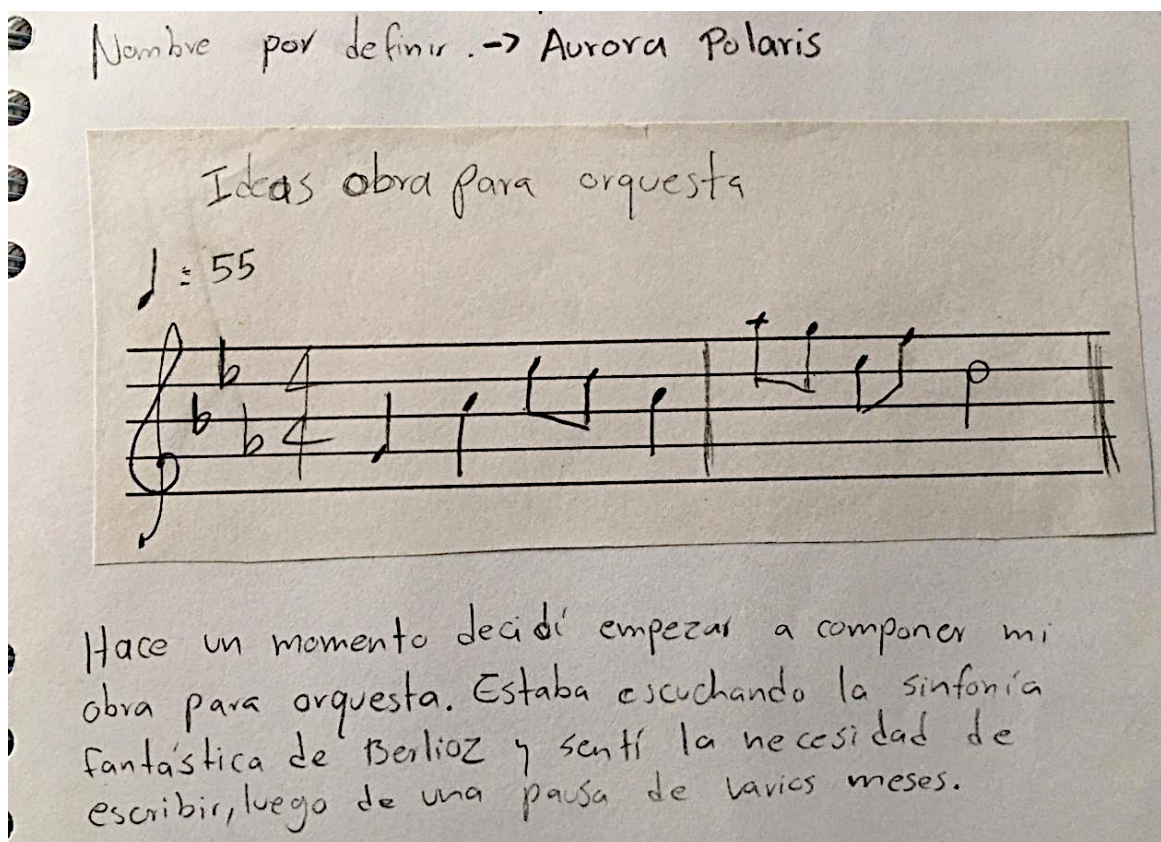 Nombre por definir. -> Aurora Polaris
Ideas obra para orquesta
♩ = 55
4
4
Hace un momento decidí empezar a componer mi
obra para orquesta. Estaba escuchando la sinfonía
fantástica de Berlioz y sentí la necesidad de
escribir, luego de una pausa de varios meses.